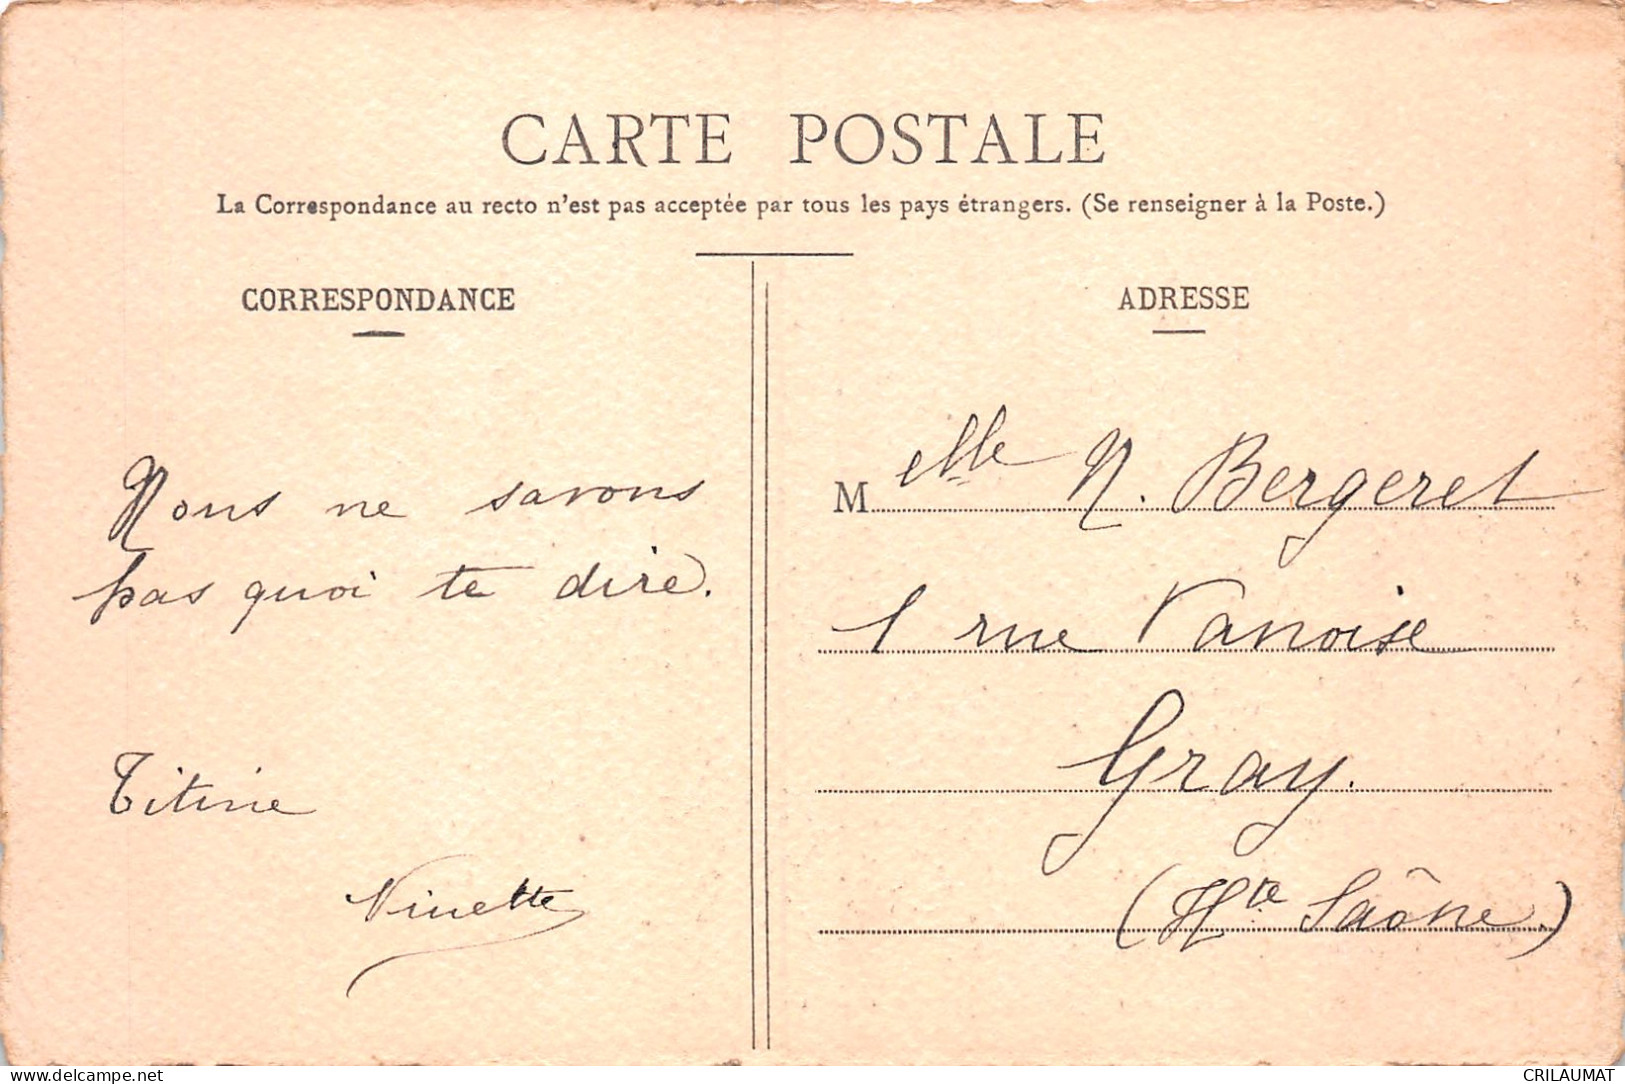 CARTE POSTALE
La Correspondance au recto n'est pas acceptée par tous les pays étrangers. (Se renseigner à la Poste.)
CORRESPONDANCE
Nous ne savons
pas quoi te dire.
Titine
Ninette
ADRESSE
Melle N. Bergeret
1 rue Vanoise
Gray.
(Hte Saône.)
www.delcampe.net
CRILAUMAT